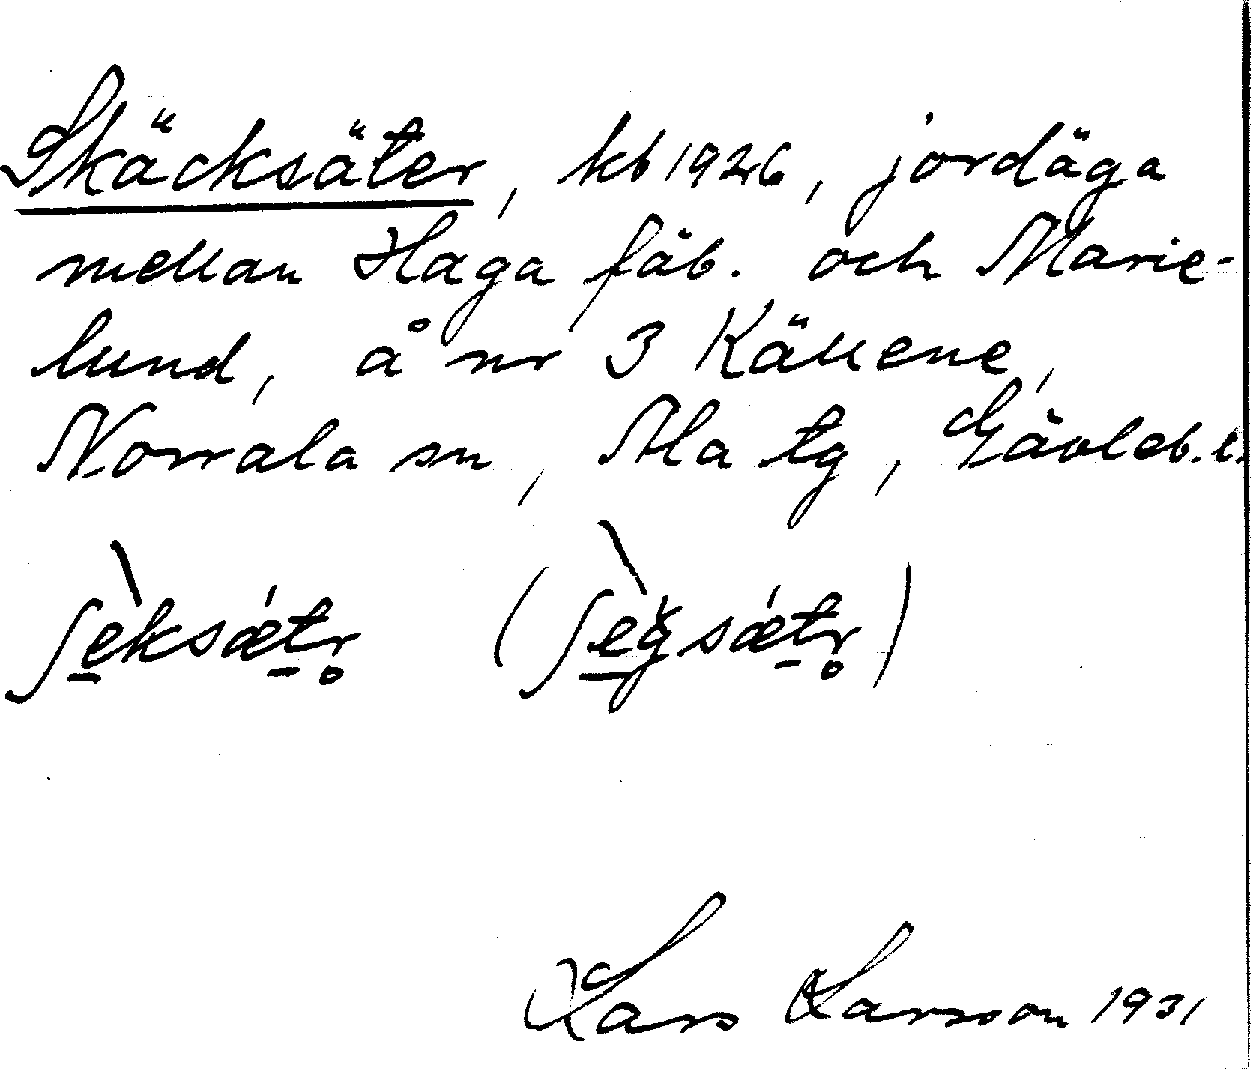 Skäcksäter, kb 1926, jordäga
mellan Haga fäb. och Marie-
lund, å nr 3 Källene,
Norrala sn, Ala tg, Gävleb. l.
ʃèksǽtr̥ (ʃèg̊sǽtr̥)
Lars Larsson 1931